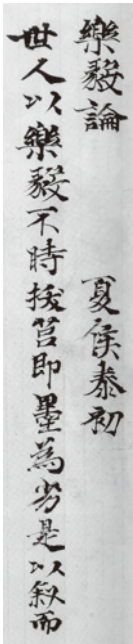 樂毅論　夏侯泰初
世人以樂毅不時拔莒即墨為劣是以叙而